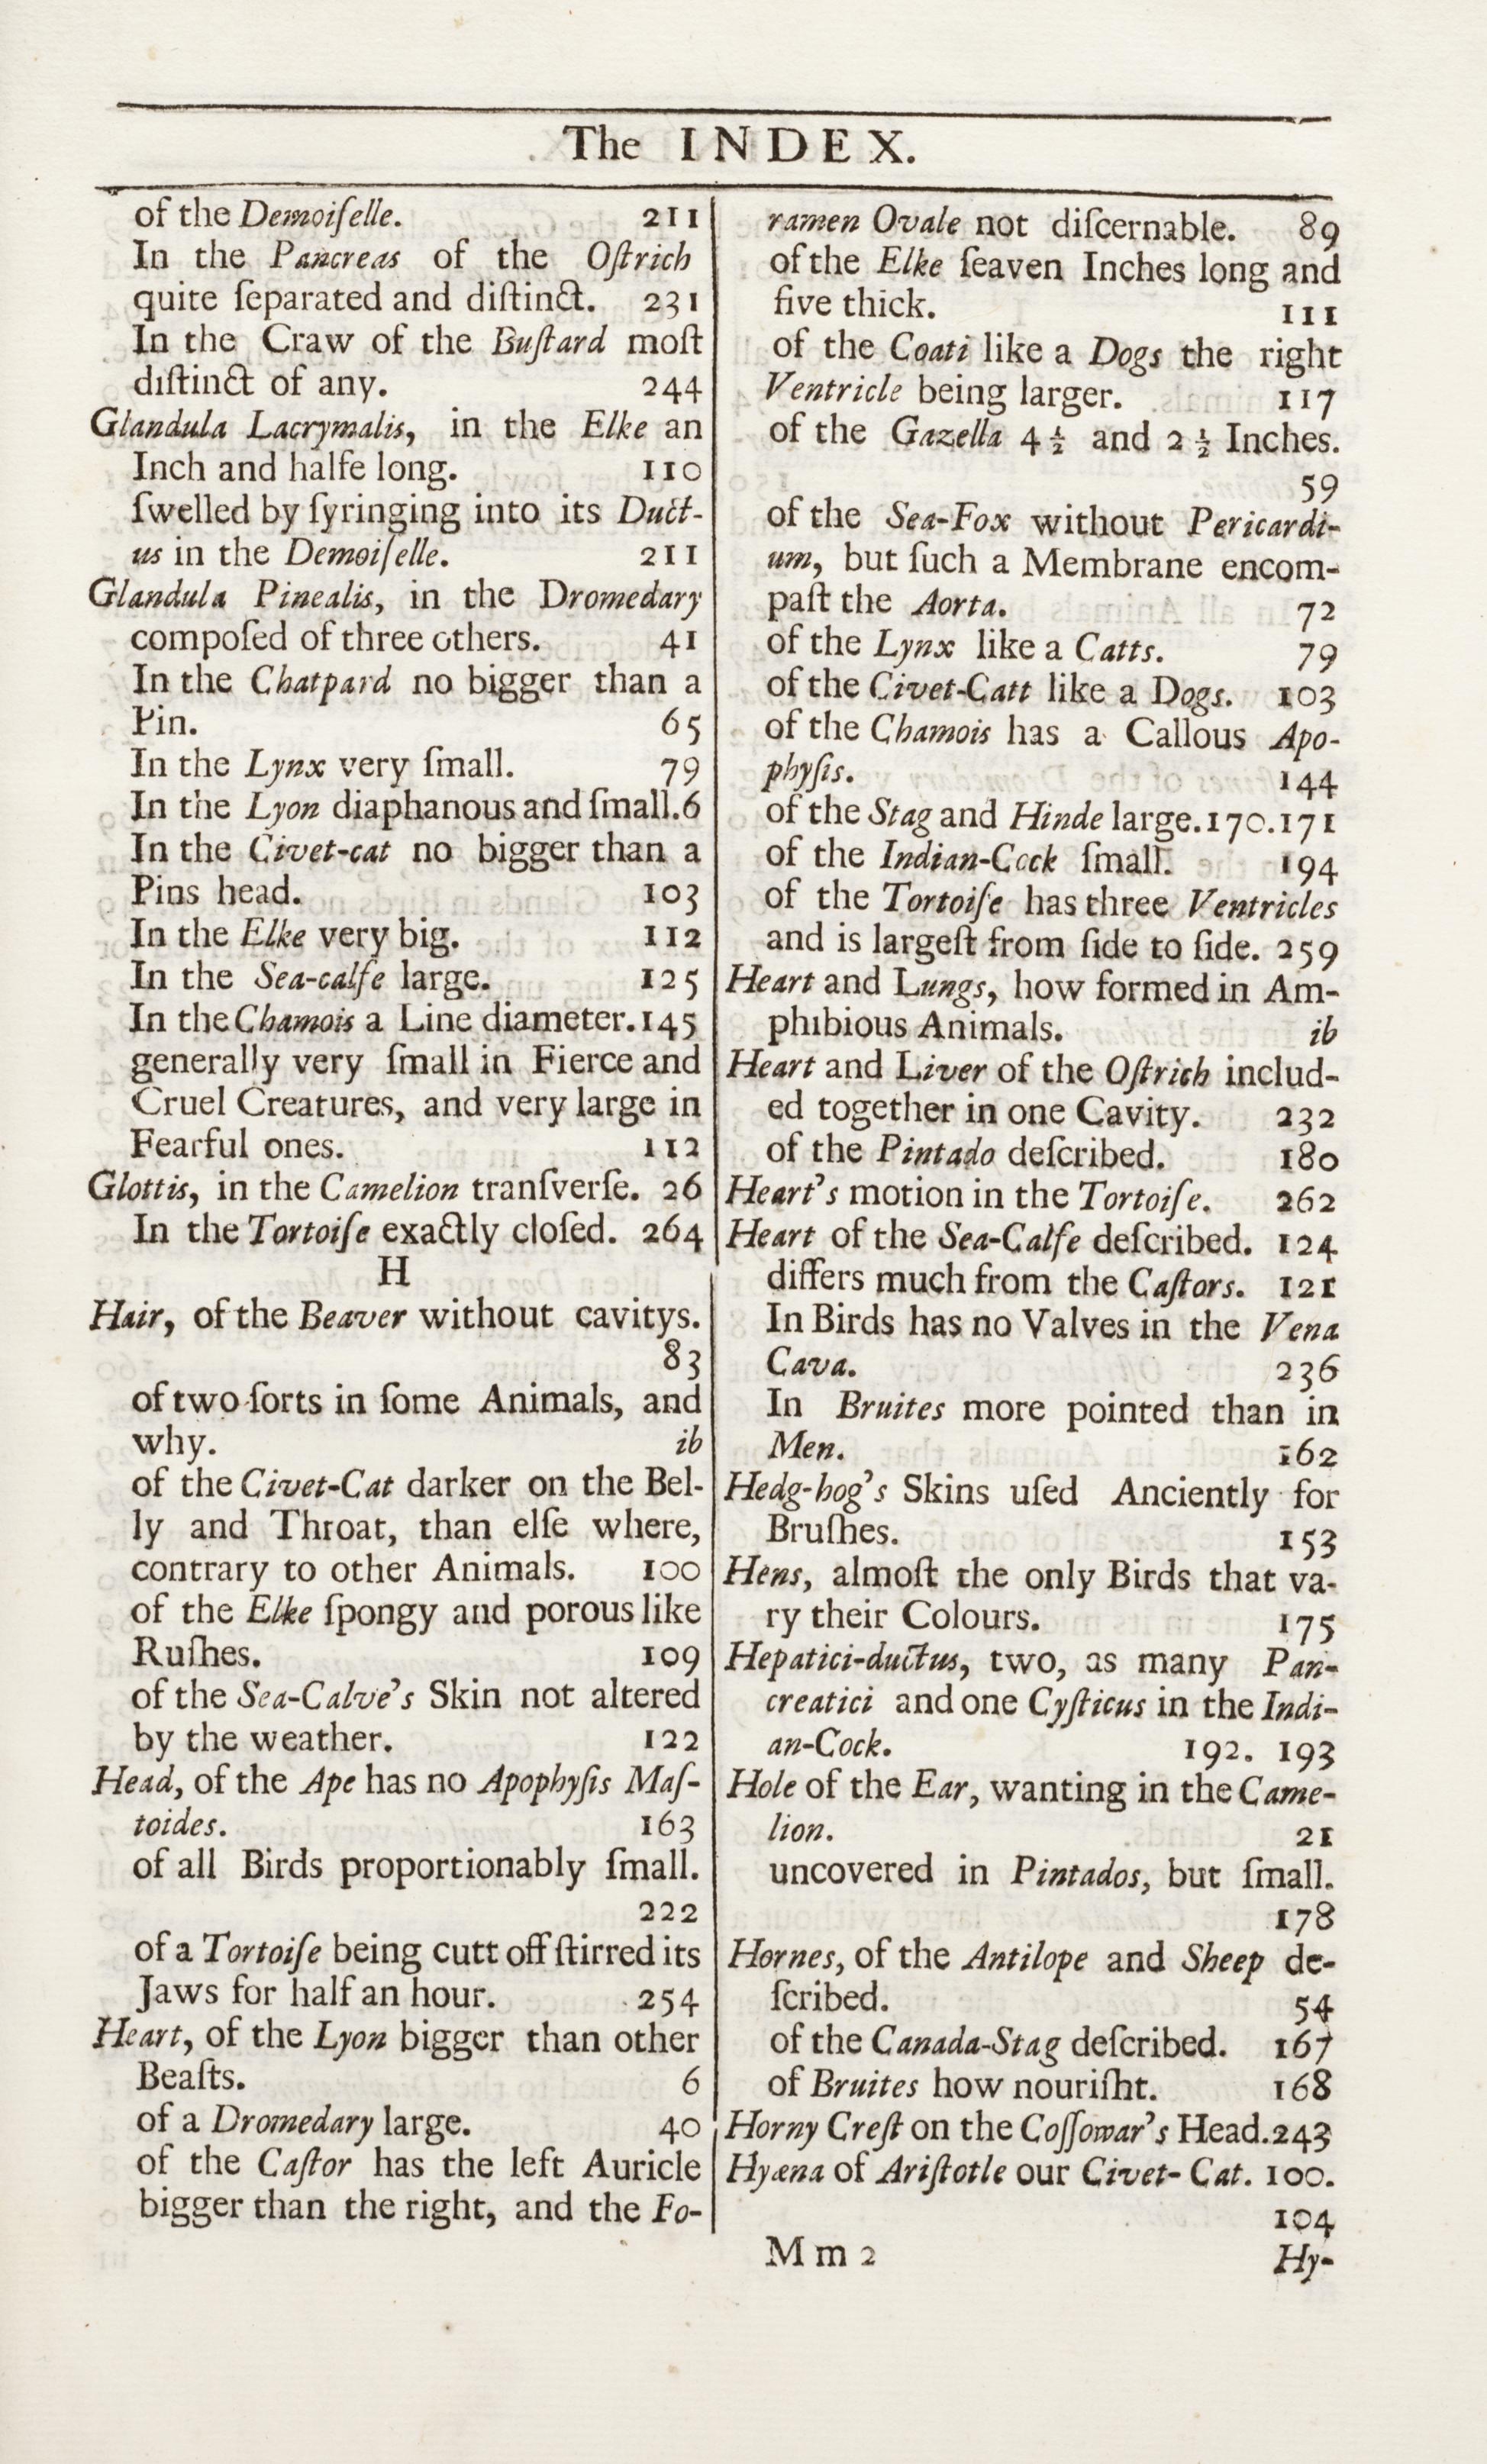 The INDEX.
of the Demoiſelle. 211
In the Pancreas of the Oſtrich
quite ſeparated and diſtinct. 231
In the Craw of the Buſtard moſt
diſtinct of any. 244
Glandula Lacrymalis, in the Elke an
Inch and halfe long. 110
ſwelled by ſyringing into its Duct-
us in the Demoiſelle. 211
Glandula Pinealis, in the Dromedary
compoſed of three others. 41
In the Chatpard no bigger than a
Pin. 65
In the Lynx very ſmall. 79
In the Lyon diaphanous and ſmall. 6
In the Civet-cat no bigger than a
Pins head. 103
In the Elke very big. 112
In the Sea-calfe large. 125
In the Chamois a Line diameter. 145
generally very ſmall in Fierce and
Cruel Creatures, and very large in
Fearful ones. 112
Glottis, in the Camelion tranſverſe. 26
In the Tortoiſe exactly cloſed. 264
H
Hair, of the Beaver without cavitys.
83
of two ſorts in ſome Animals, and
why. ib
of the Civet-Cat darker on the Bel-
ly and Throat, than elſe where,
contrary to other Animals. 100
of the Elke ſpongy and porous like
Ruſhes. 109
of the Sea-Calve's Skin not altered
by the weather. 122
Head, of the Ape has no Apophyſis Maſ-
toides. 163
of all Birds proportionably ſmall.
222
of a Tortoiſe being cutt off ſtirred its
Jaws for half an hour. 254
Heart, of the Lyon bigger than other
Beaſts. 6
of a Dromedary large. 40
of the Caſtor has the left Auricle
bigger than the right, and the Fo-
ramen Ovale not diſcernable. 89
of the Elke ſeaven Inches long and
five thick. 111
of the Coati like a Dogs the right
Ventricle being larger. 117
of the Gazella 4 ½ and 2 ½ Inches.
59
of the Sea-Fox without Pericardi-
um, but ſuch a Membrane encom-
paſt the Aorta. 72
of the Lynx like a Catts. 79
of the Civet-Catt like a Dogs. 103
of the Chamois has a Callous Apo-
phyſis. 144
of the Stag and Hinde large. 170. 171
of the Indian-Cock ſmall. 194
of the Tortoiſe has three Ventricles
and is largeſt from ſide to ſide. 259
Heart and Lungs, how formed in Am-
phibious Animals. ib
Heart and Liver of the Oſtrich includ-
ed together in one Cavity. 232
of the Pintado deſcribed. 180
Heart's motion in the Tortoiſe. 262
Heart of the Sea-Calfe deſcribed. 124
differs much from the Caſtors. 121
In Birds has no Valves in the Vena
Cava. 236
In Bruites more pointed than in
Men. 162
Hedg-hog's Skins uſed Anciently for
Bruſhes. 153
Hens, almoſt the only Birds that va-
ry their Colours. 175
Hepatici-ductus, two, as many Pan-
creatici and one Cyſticus in the Indi-
an-Cock. 192. 193
Hole of the Ear, wanting in the Came-
lion. 21
uncovered in Pintados, but ſmall.
178
Hornes, of the Antilope and Sheep de-
ſcribed. 54
of the Canada-Stag deſcribed. 167
of Bruites how nouriſht. 168
Horny Creſt on the Coſſowar's Head. 243
Hyæna of Ariſtotle our Civet-Cat. 100.
104
M m 2 Hy-